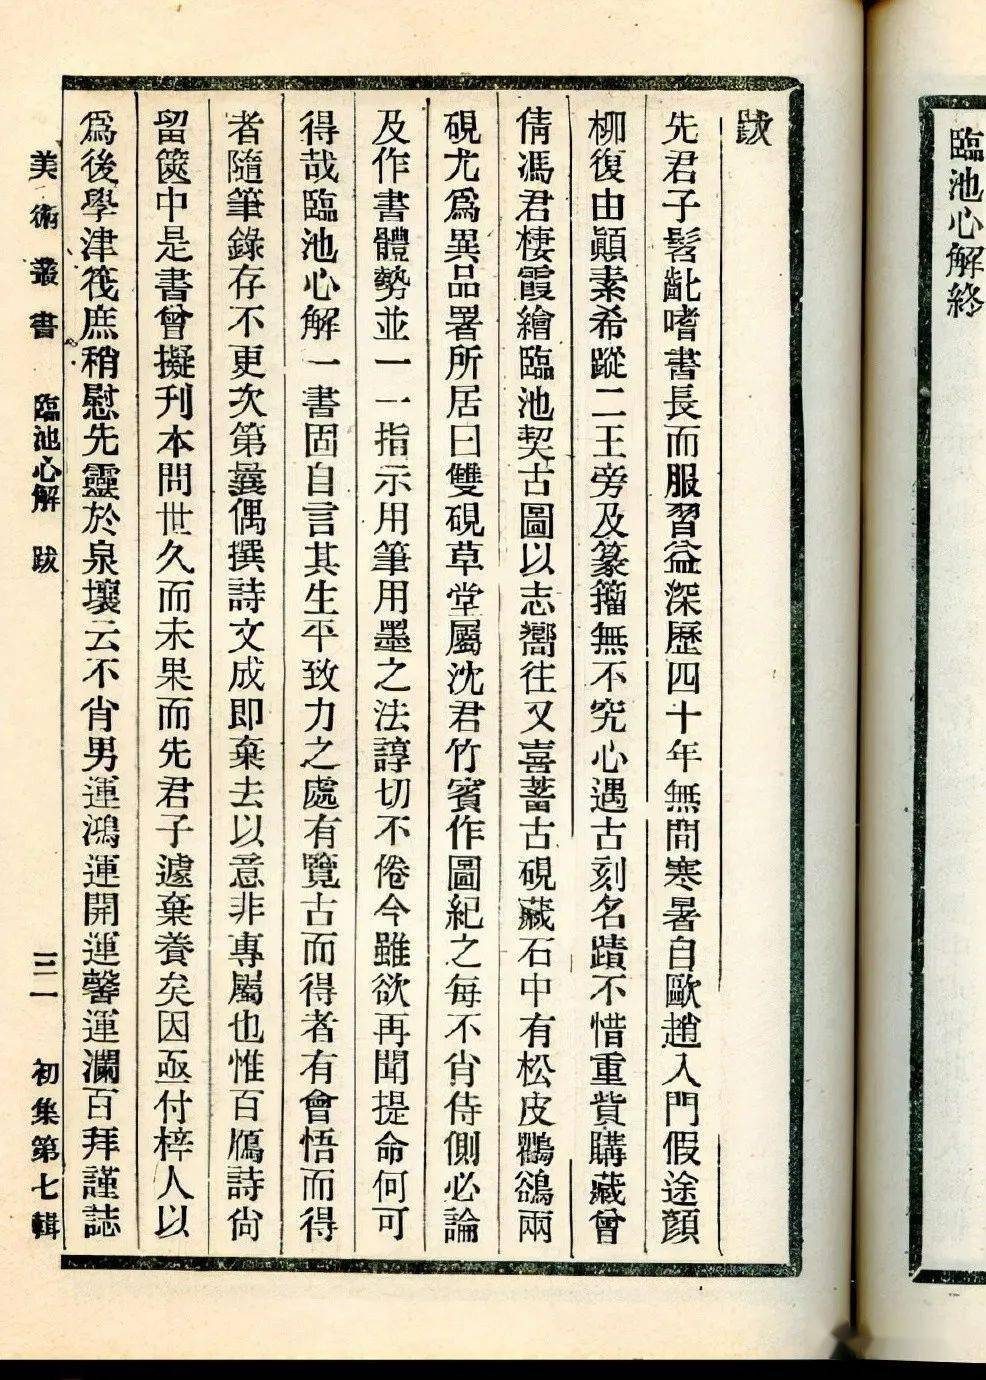 臨池心解終
跋
先君子髫齔嗜書長而服習益深歷四十年無間寒暑自歐趙入門假途顏
柳復由顚素希蹤二王旁及篆籀無不究心遇古刻名蹟不惜重貲購藏曾
倩馮君棲霞繪臨池契古圖以志嚮往又喜蓄古硯藏石中有松皮鸜鵒兩
硯尤爲異品署所居曰雙硯草堂屬沈君竹賓作圖紀之每不肖侍側必論
及作書體勢並一一指示用筆用墨之法諄切不倦今雖欲再聞提命何可
得哉臨池心解一書固自言其生平致力之處有覽古而得者有會悟而得
者隨筆錄存不更次第曩偶撰詩文成即棄去以意非專屬也惟百鴈詩尙
留篋中是書曾擬刊本問世久而未果而先君子遽棄養矣因亟付梓人以
爲後學津筏庶稍慰先靈於泉壤云不肖男運鴻運開運馨運瀾百拜謹誌
美術叢書 臨池心解 跋 三一 初集第七輯